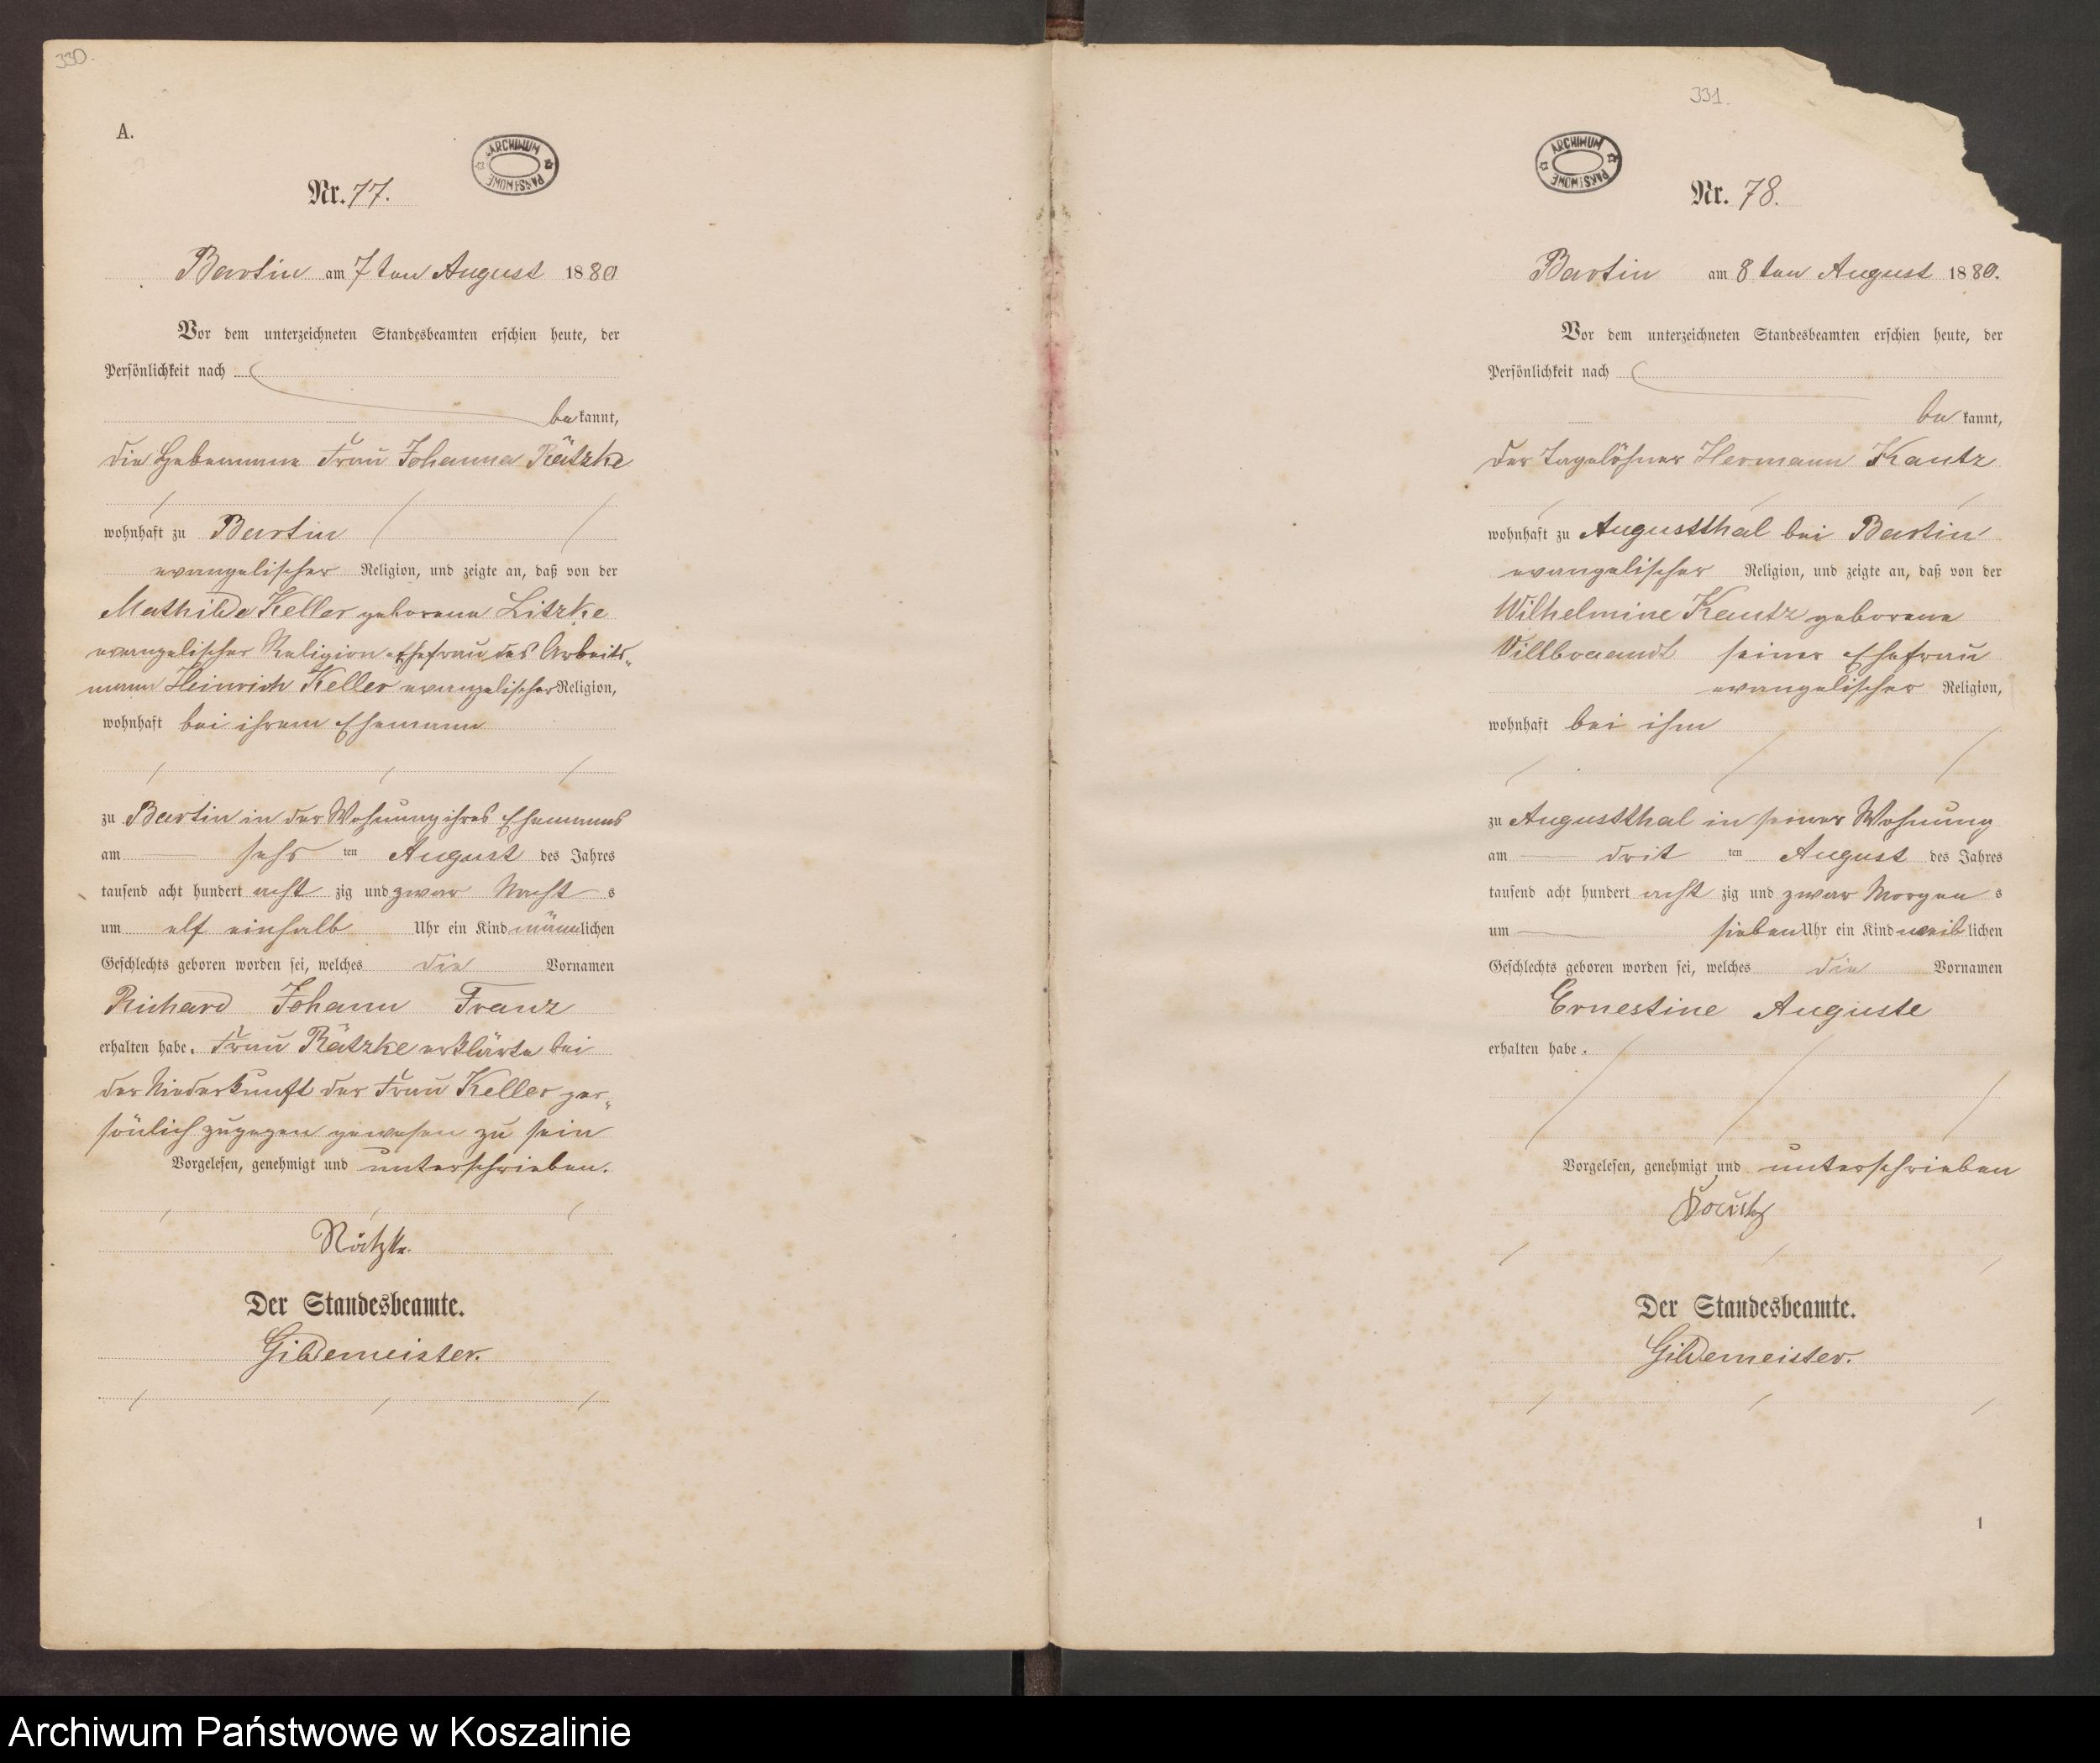 330.
A.
ARCHIWUM PAŃSTWOWE
Nr. 77.
Bartin am 7ten August 1880
Vor dem unterzeichneten Standesbeamten erschien heute, der
Persönlichkeit nach
bekannt,
die Hebeamme Frau Johanna Rätzke
wohnhaft zu Bartin
evangelischer Religion, und zeigte an, daß von der
Mathilde Keller geborene Litzke
evangelischer Religion Ehefrau des Arbeits-
mann Heinrich Keller evangelischer Religion,
wohnhaft bei ihrem Ehemann
zu Bartin in der Wohnung ihres Ehemanns
am sechsten August des Jahres
tausend acht hundert achtzig und zwar Nachts
um elf einhalb Uhr ein Kind männlichen
Geschlechts geboren worden sei, welches die Vornamen
Richard Johann Franz
erhalten habe. Frau Rätzke erklärte bei
der Niederkunft der Frau Keller per-
sönlich zugegen gewesen zu sein
Vorgelesen, genehmigt und unterschrieben.
Rätzke.
Der Standesbeamte.
Gildemeister.
331.
ARCHIWUM PAŃSTWOWE
Nr. 78.
Bartin am 8ten August 1880.
Vor dem unterzeichneten Standesbeamten erschien heute, der
Persönlichkeit nach
bekannt,
der Tagelöhner Hermann Kautz
wohnhaft zu Augustthal bei Bartin
evangelischer Religion, und zeigte an, daß von der
Wilhelmine Kautz geborene
Villbraandt seiner Ehefrau
evangelischer Religion,
wohnhaft bei ihm
zu Augustthal in seiner Wohnung
am dritten August des Jahres
tausend acht hundert achtzig und zwar Morgens
um sieben Uhr ein Kind weiblichen
Geschlechts geboren worden sei, welches die Vornamen
Ernestine Auguste
erhalten habe.
Vorgelesen, genehmigt und unterschrieben
Kautz
Der Standesbeamte.
Gildemeister.
1
Archiwum Państwowe w Koszalinie